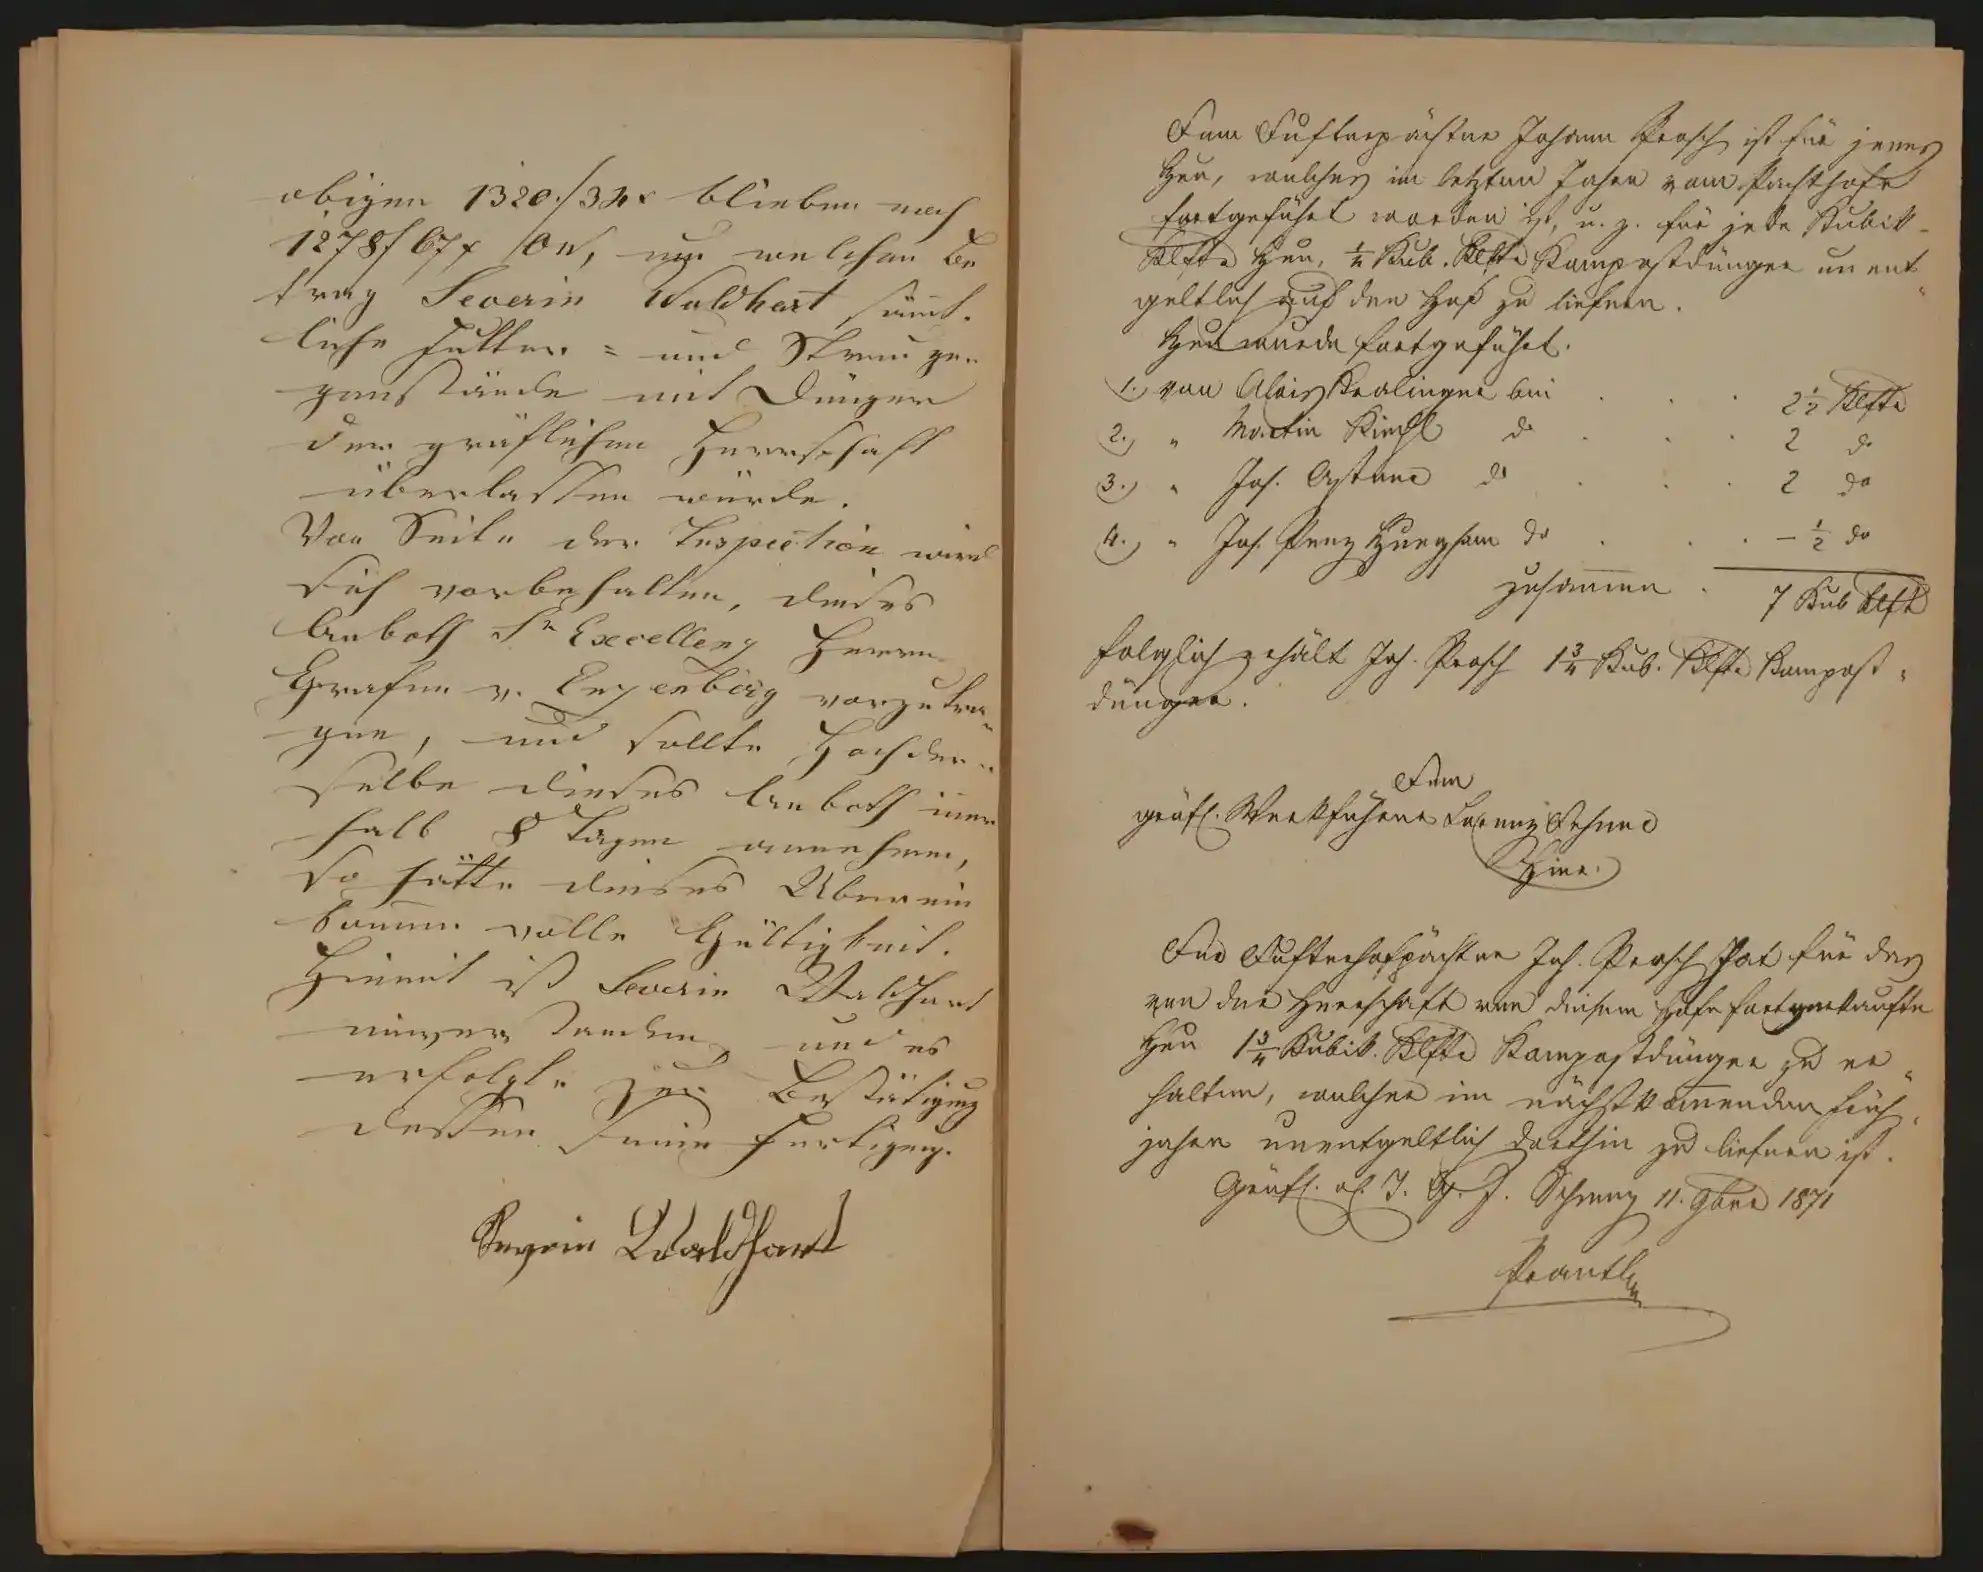 obigen 1320 f 34 x blieben noch
1278 f 67 x ÖW, um welchen Be
trag Severin Waldhart sämt-
liche Futter = und Streuge-
genstände mit Dünger
der gräflichen Herrschaft
überlassen würde.
Von Seite der Inspection wird
sich vorbehalten, dieses
Anboth Sr Excellenz Herrn
Grafen v. Enzenberg vorzutra-
gen, und sollte Hochder-
selbe dieses Anboth iner
halb 8 Tagen annehmen,
so hätte dieses Überein
komm volle Gültigkeit.
Hiemit ist Severin Waldhart
einverstanden und es
erfolgte zur Bestätigung
dessen seine Fertigung.
Severin Waldhart
Dem Pächter Johann Prosch ist für jenes
Heu, welches im letzten Jahre vom Pachthofe
fortgeführt worden ist, u. z. für jede Kubik-
Klftr Heu, ¼ Kub. Klftr Kompostdünger unent-
geltlich auf den Hof zu liefern.
Heu wurde fortgeführt.
1.) von Alois Kralinger bei . . . 2½ Klftr
2.) " Martin Kirchl do . . . 2 do
3.) " Joh. Astner do . . . 2 do
4.) " Joh. Penz do . . . - ½ do
zusammen . 7 Kub Klft
folglich erhält Joh. Prosch 1¾ Kub. Klftr Kompost-
dünger.
Dem
gräfl. Werkführer Lorenz
Hier.
Der Pächter Joh. Prosch hat für das
von der Herrschaft von diesem Hofe fortverkaufte
Heu 1¾ Kubik. Klftr Kompostdünger zu er-
halten, welcher im nächstkomenden Früh-
jahre unentgeltlich dorthin zu liefern ist.
Gräfl. Schwaz 11. 9bre 1871
Prantl